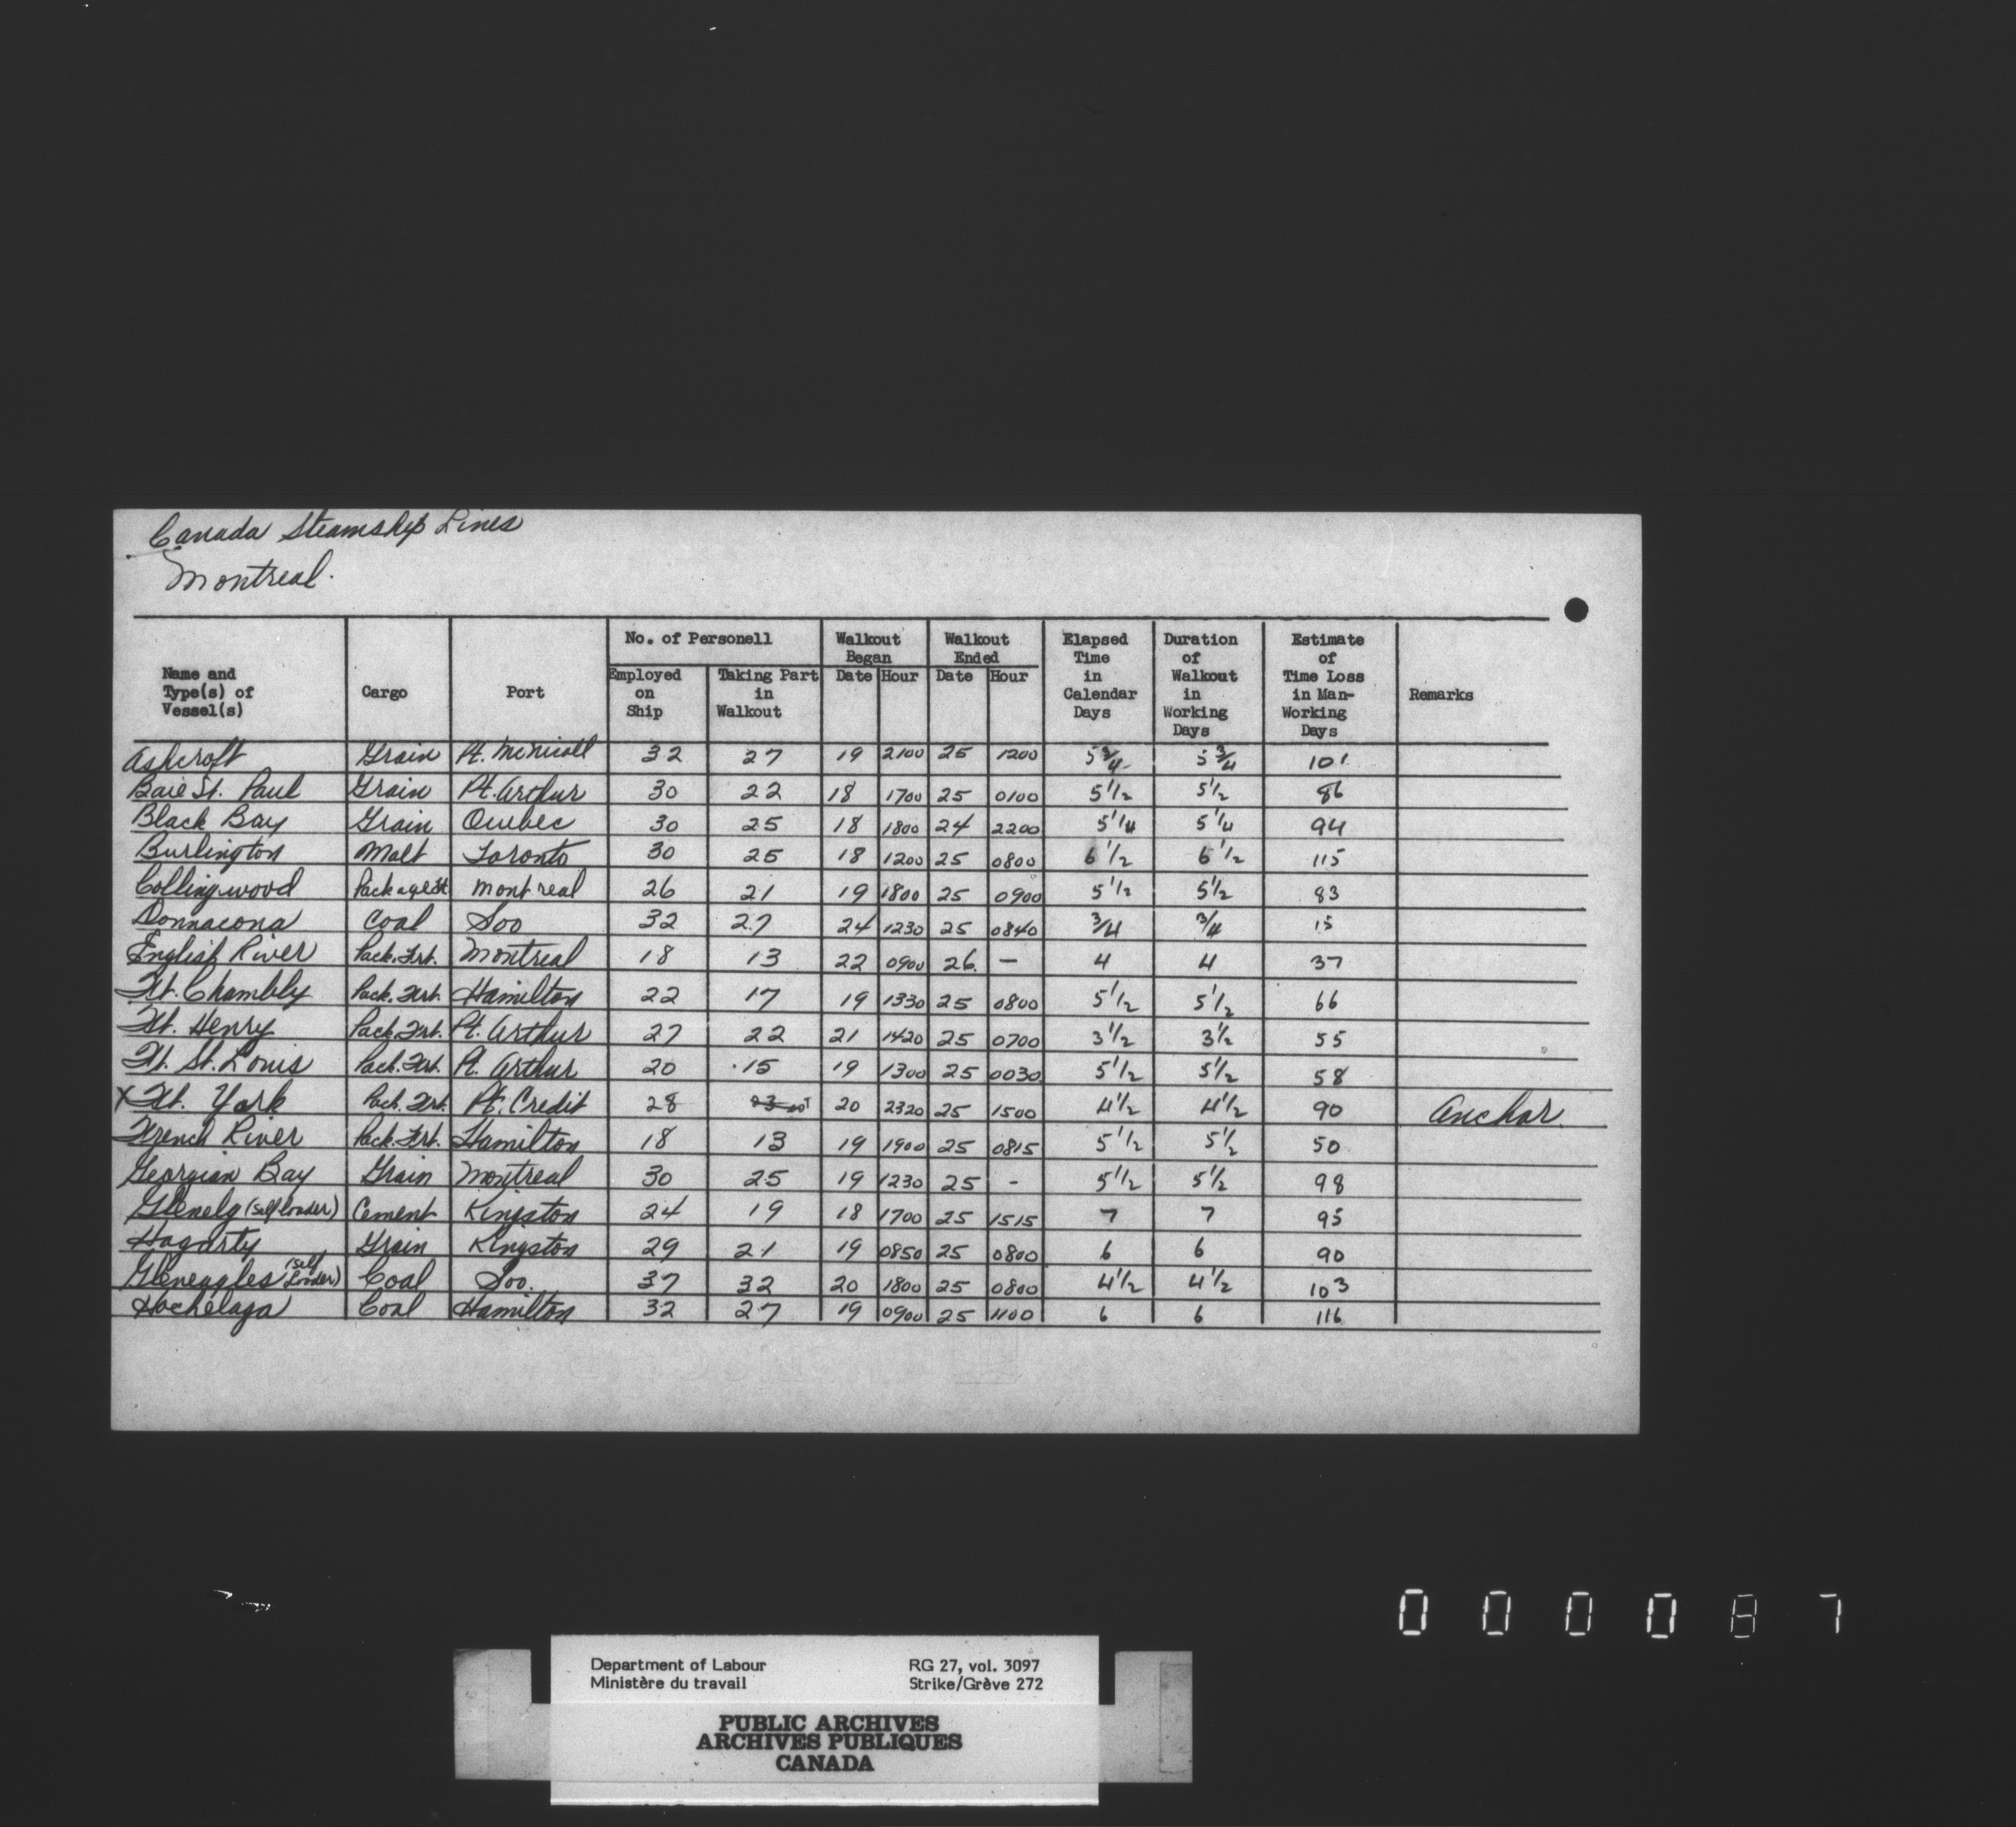 Canada Steamship Lines
Montreal.
No. of Personell Walkout Began Walkout Ended Elapsed Time in Calendar Days Duration of Walkout in Working Days Estimate of Time Loss in Man-Working Days
Name and Type(s) of Vessel(s) Cargo Port Employed on Ship Taking Part in Walkout Date Hour Date Hour Remarks
Ashcroft Grain Pt. McNicoll 32 27 19 2100 25 1200 5 3/4 5 3/4 101
Baie St. Paul Grain Pt. Arthur 30 22 18 1700 25 0100 5 1/2 5 1/2 86
Black Bay Grain Quebec 30 25 18 1800 24 2200 5 1/4 5 1/4 94
Burlington Malt Toronto 30 25 18 1200 25 0800 6 1/2 6 1/2 115
Collingwood Package Montreal 26 21 19 1800 25 0900 5 1/2 5 1/2 83
Donnacona Coal Soo 32 27 24 1230 25 0840 3/4 3/4 15
English River Pack. Frt. Montreal 18 13 22 0900 26 — 4 4 37
Ft. Chambly Pack. Frt. Hamilton 22 17 19 1330 25 0800 5 1/2 5 1/2 66
Ft. Henry Pack. Frt. Pt. Arthur 27 22 21 1420 25 0700 3 1/2 3 1/2 55
Ft. St. Louis Pack. Frt. Pt. Arthur 20 15 19 1300 25 0030 5 1/2 5 1/2 58
X Ft. York Pack. Frt. Pt. Credit 28 23 20 2320 25 1500 4 1/2 4 1/2 90 Anchor.
French River Pack. Frt. Hamilton 18 13 19 1900 25 0815 5 1/2 5 1/2 50
Georgian Bay Grain Montreal 30 25 19 1230 25 - 5 1/2 5 1/2 98
Glenelg (self loader) Cement Kingston 24 19 18 1700 25 1515 7 7 95
Hagarty Grain Kingston 29 21 19 0850 25 0800 6 6 90
Gleneagles (Self Loader) Coal Soo. 37 32 20 1800 25 0800 4 1/2 4 1/2 103
Hochelaga Coal Hamilton 32 27 19 0900 25 1100 6 6 116
0 0 0 0 8 7
Department of Labour RG 27, vol. 3097
Ministère du travail Strike/Grève 272
PUBLIC ARCHIVES
ARCHIVES PUBLIQUES
CANADA